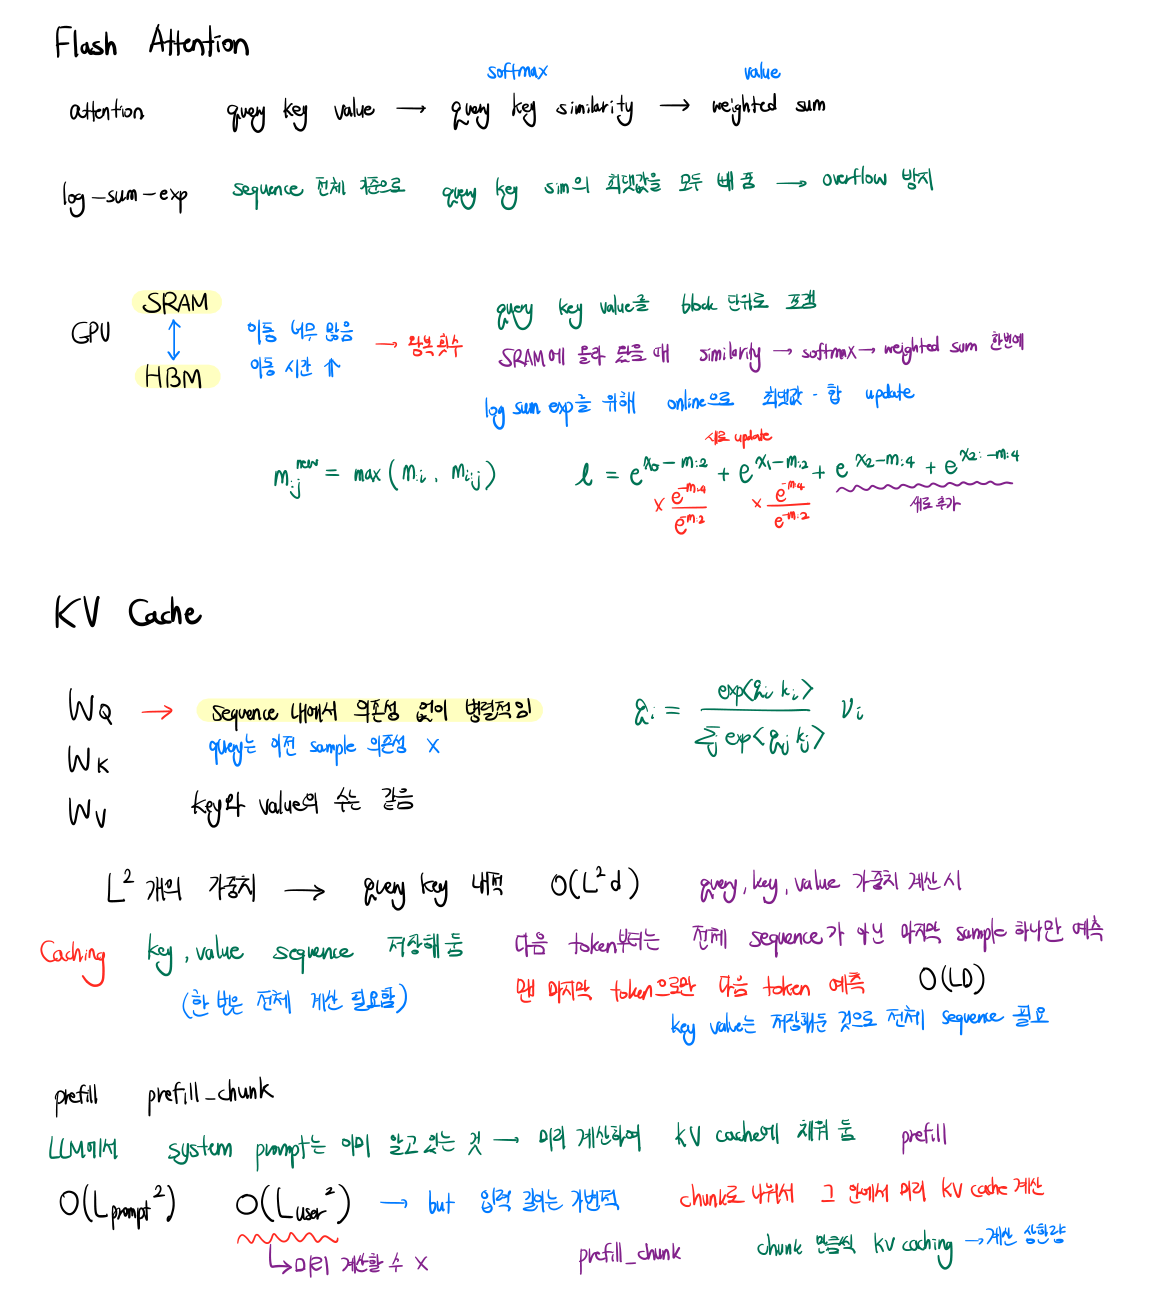 Flash Attention
softmax value
attention query key value → query key similarity → weighted sum
log-sum-exp sequence 전체 기준으로 query key sim의 최댓값을 모두 빼 줌 → overflow 방지
SRAM
GPU
HBM
이동 너무 많음
이동 시간 ⇑
→ 왕복 횟수
query key value를 block 단위로 쪼갬
SRAM에 올라 왔을 때 similarity → softmax → weighted sum 한번에
log sum exp를 위해 online으로 최댓값 - 합 update
새로 update
m_{:j}^{new} = max(m_{:i}, m_{i:j})
l = e^{x_0 - m_{:2}} + e^{x_1 - m_{:2}} + e^{x_2 - m_{:4}} + e^{x_{2:} - m_{:4}}
× e^{-m_{:4}} / e^{-m_{:2}} × e^{-m_{:4}} / e^{-m_{:2}} 새로 추가
KV Cache
W_Q → sequence 내에서 의존성 없이 병렬적임
query는 이전 sample 의존성 X
W_K
W_V key와 value의 수는 같음
q_i = exp<q_i k_i> / Σ_j exp<q_j k_j> v_i
L^2 개의 가중치 → query key 내적 O(L^2 d) query, key, value 가중치 계산 시
Caching key, value sequence 저장해 둠 다음 token부터는 전체 sequence가 아닌 마지막 sample 하나만 예측
(한 번은 전체 계산 필요함) 맨 마지막 token으로만 다음 token 예측 O(LD)
key value는 저장해둔 것으로 전체 sequence 필요
prefill prefill_chunk
LLM에서 system prompt는 이미 알고 있는 것 → 미리 계산하여 KV cache에 채워 둠 prefill
O(L_{prompt}^2) O(L_{user}^2) → but 입력 길이는 가변적 chunk로 나눠서 그 안에서 미리 KV cache 계산
↳ 미리 계산할 수 X prefill_chunk chunk 만큼씩 KV caching → 계산 상한량